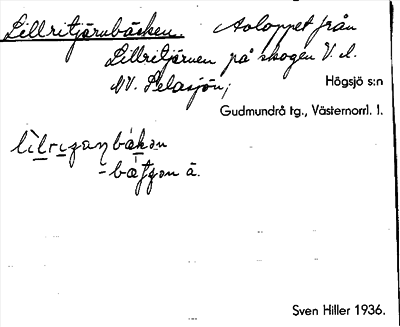 Lillritjärnbäcken. Avloppet från
Lillritjärnen på skogen V. d.
NV. Selasjön;
Högsjö s:n
Gudmundrå tg., Västernorrl. l.
-bætʃən ä.
Sven Hiller 1936.